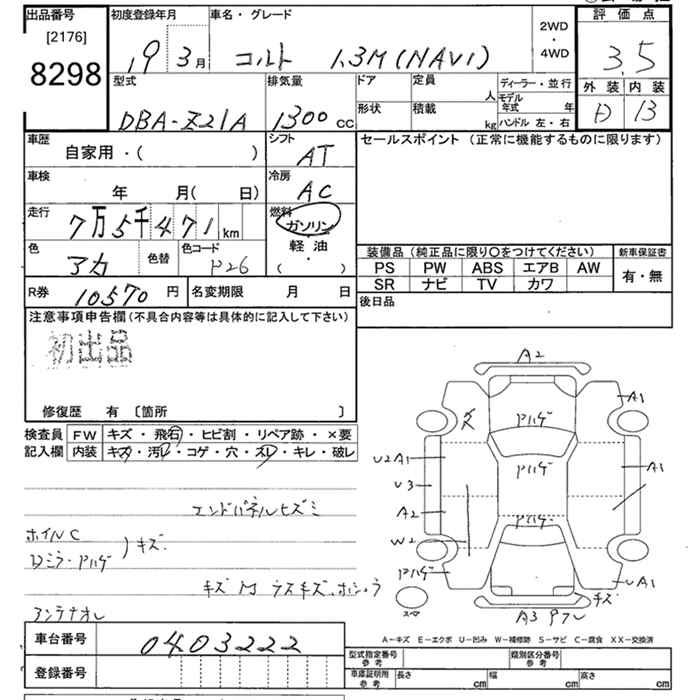 出品番号
[2176]
8298
初度登録年月
19 3月
車名・グレード
コルト 1.3M (NAVI)
2WD
・
4WD
評価点
3.5
外装 内装
D B
型式
DBA-Z21A
排気量
1300 CC
ドア
定員
人
形状
積載
kg
ディーラー・並行
モデル年式 年
ハンドル 左・右
車歴
自家用・( )
シフト
AT
セールスポイント (正常に機能するものに限ります)
車検
年 月( 日)
冷房
AC
走行
7万5千471km
燃料
ガソリン
軽油
( ・ )
色
アカ
色替
色コード
P26
装備品 (純正品に限り〇をつけてください)
PS PW ABS エアB AW
SR ナビ TV カワ
新車保証書
有・無
R券 10570 円
名変期限 月 日
後日品
注意事項申告欄 (不具合内容等は具体的に記入して下さい)
初出品
修復歴 有 〔箇所 〕
検査員記入欄
FW キズ・飛石・ヒビ割・リペア跡・×要
内装 キズ・汚レ・コゲ・穴・スレ・キレ・破レ
エンドパネルヒズミ
ホイルC
Dミラー・Pハゲ ) キズ
アンテナオレ
A2
A1
Pハゲ
U2 A1
Pハゲ
A1
U3
A2
Pハゲ
W2
Pハゲ
UA1
キズ
スマ
A3
A-キズ E-エクボ U-凹み W-補修跡 S-サビ C-腐食 XX-交換済
車台番号 0403222
登録番号
型式指定番号 参考
類別区分番号 参考
車庫証明用 参考
長さ cm
幅 cm
高さ cm